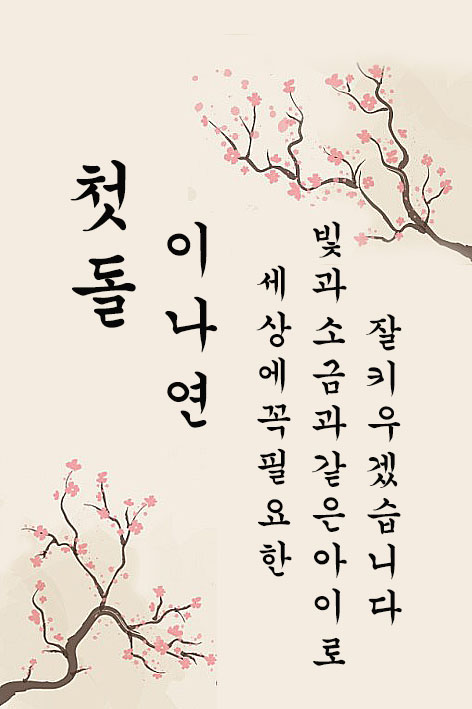 첫돌
이나연
세상에꼭필요한
빛과소금과같은아이로
잘키우겠습니다